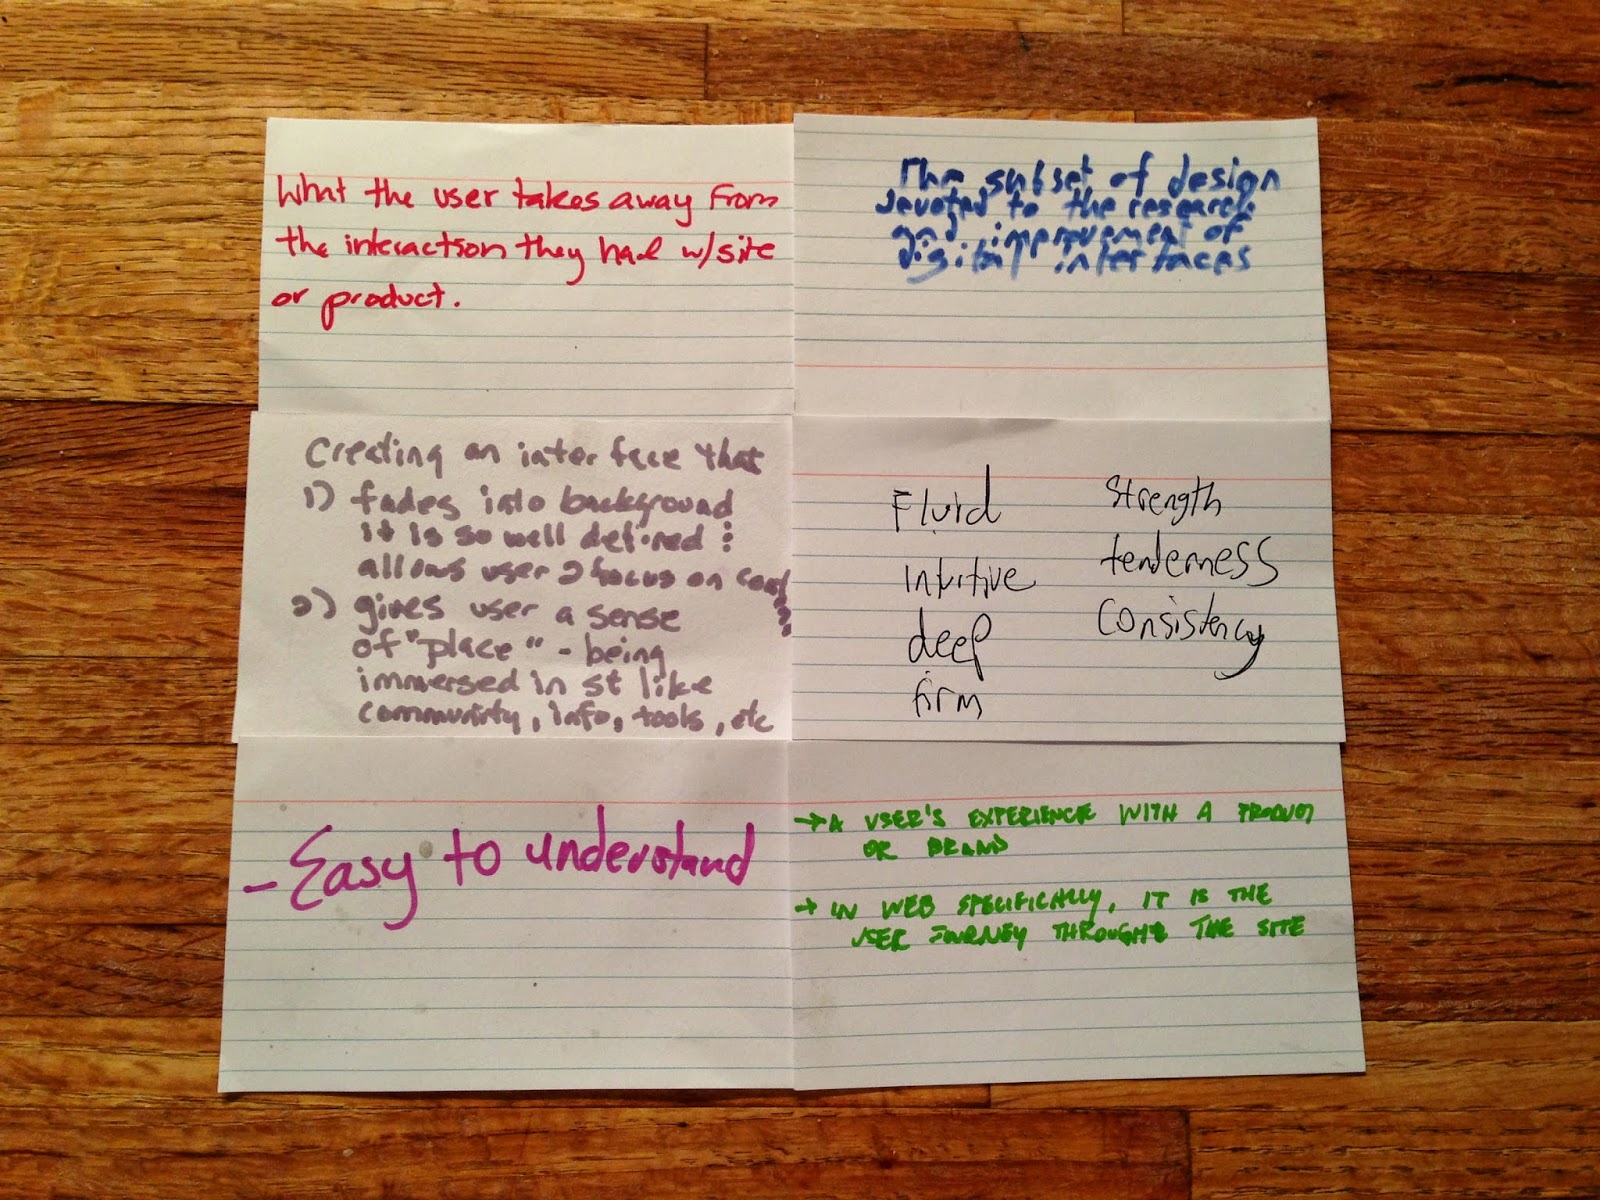 What the user takes away from
the interaction they had w/site
or product.
The subset of design
devoted to the research
and improvement of
digital interfaces
Creating an interface that
1) fades into background
it is so well defined :
allows user 2 focus on
2) gives user a sense
of "place" - being
immersed in st like
community, info, tools, etc
Fluid
intuitive
deep
firm
Strength
tenderness
consistency
- Easy to understand
→ A USER'S EXPERIENCE WITH A PRODUCT
OR BRAND
→ IN WEB SPECIFICALLY, IT IS THE
USER JOURNEY THROUGH THE SITE